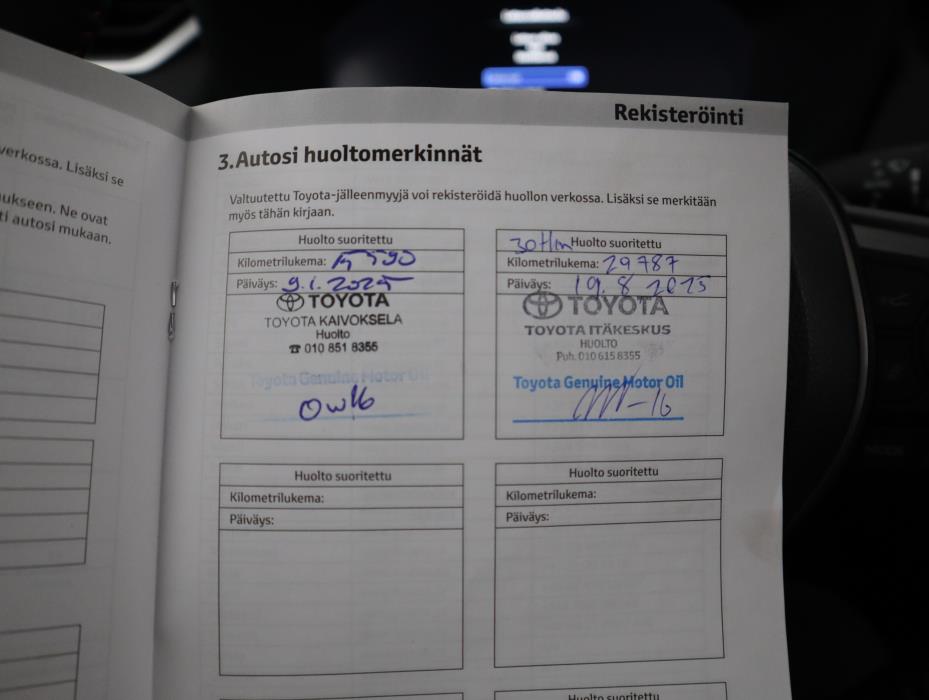 verkossa. Lisäksi se
ukseen. Ne ovat
ti autosi mukaan.
Rekisteröinti
3.Autosi huoltomerkinnät
Valtuutettu Toyota-jälleenmyyjä voi rekisteröidä huollon verkossa. Lisäksi se merkitään
myös tähän kirjaan.
Huolto suoritettu
Kilometrilukema:
Päiväys: 9.1.2025
TOYOTA
TOYOTA KAIVOKSELA
Huolto
☎ 010 851 8355
Toyota Genuine Motor Oil
0w16
30tkm Huolto suoritettu
Kilometrilukema: 29787
Päiväys: 19.8 2025
TOYOTA
TOYOTA ITÄKESKUS
HUOLTO
Puh. 010 615 8355
Toyota Genuine Motor Oil
-16
Huolto suoritettu
Kilometrilukema:
Päiväys:
Huolto suoritettu
Kilometrilukema:
Päiväys:
Huolto suoritettu